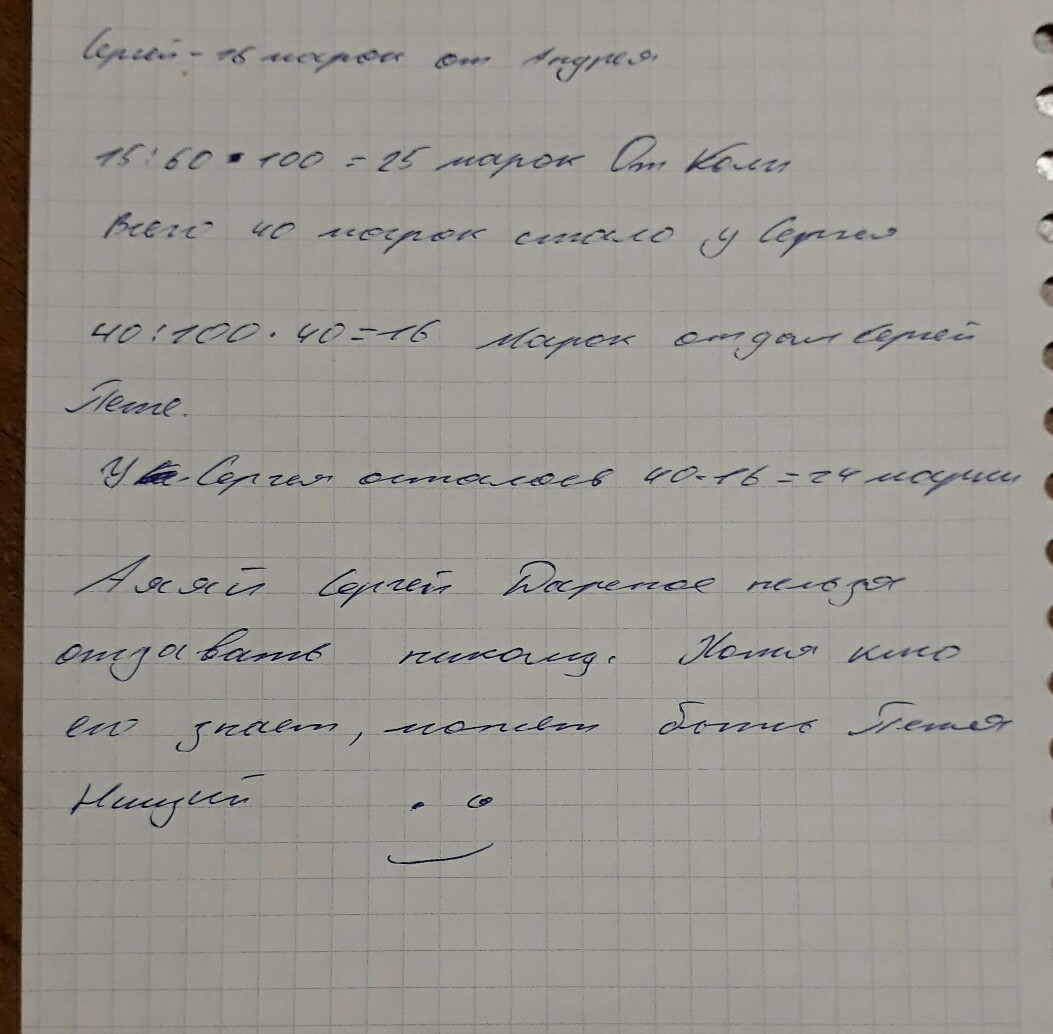 Сергей - 15 марок от Андрея
15:60·100 = 25 марок От Коли
Всего 40 марок стало у Сергея
40:100·40=16 марок отдал Сергей
Пете.
У Сергея осталось 40-16=24 марки
Аяяй Сергей Дареное нельзя
отдавать никому. Хотя кто
его знает, может быть Петя
Нищий